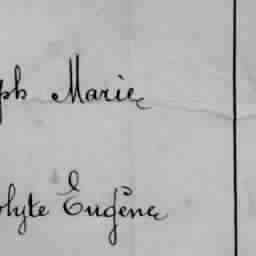 ph Marie
olyte Eugène